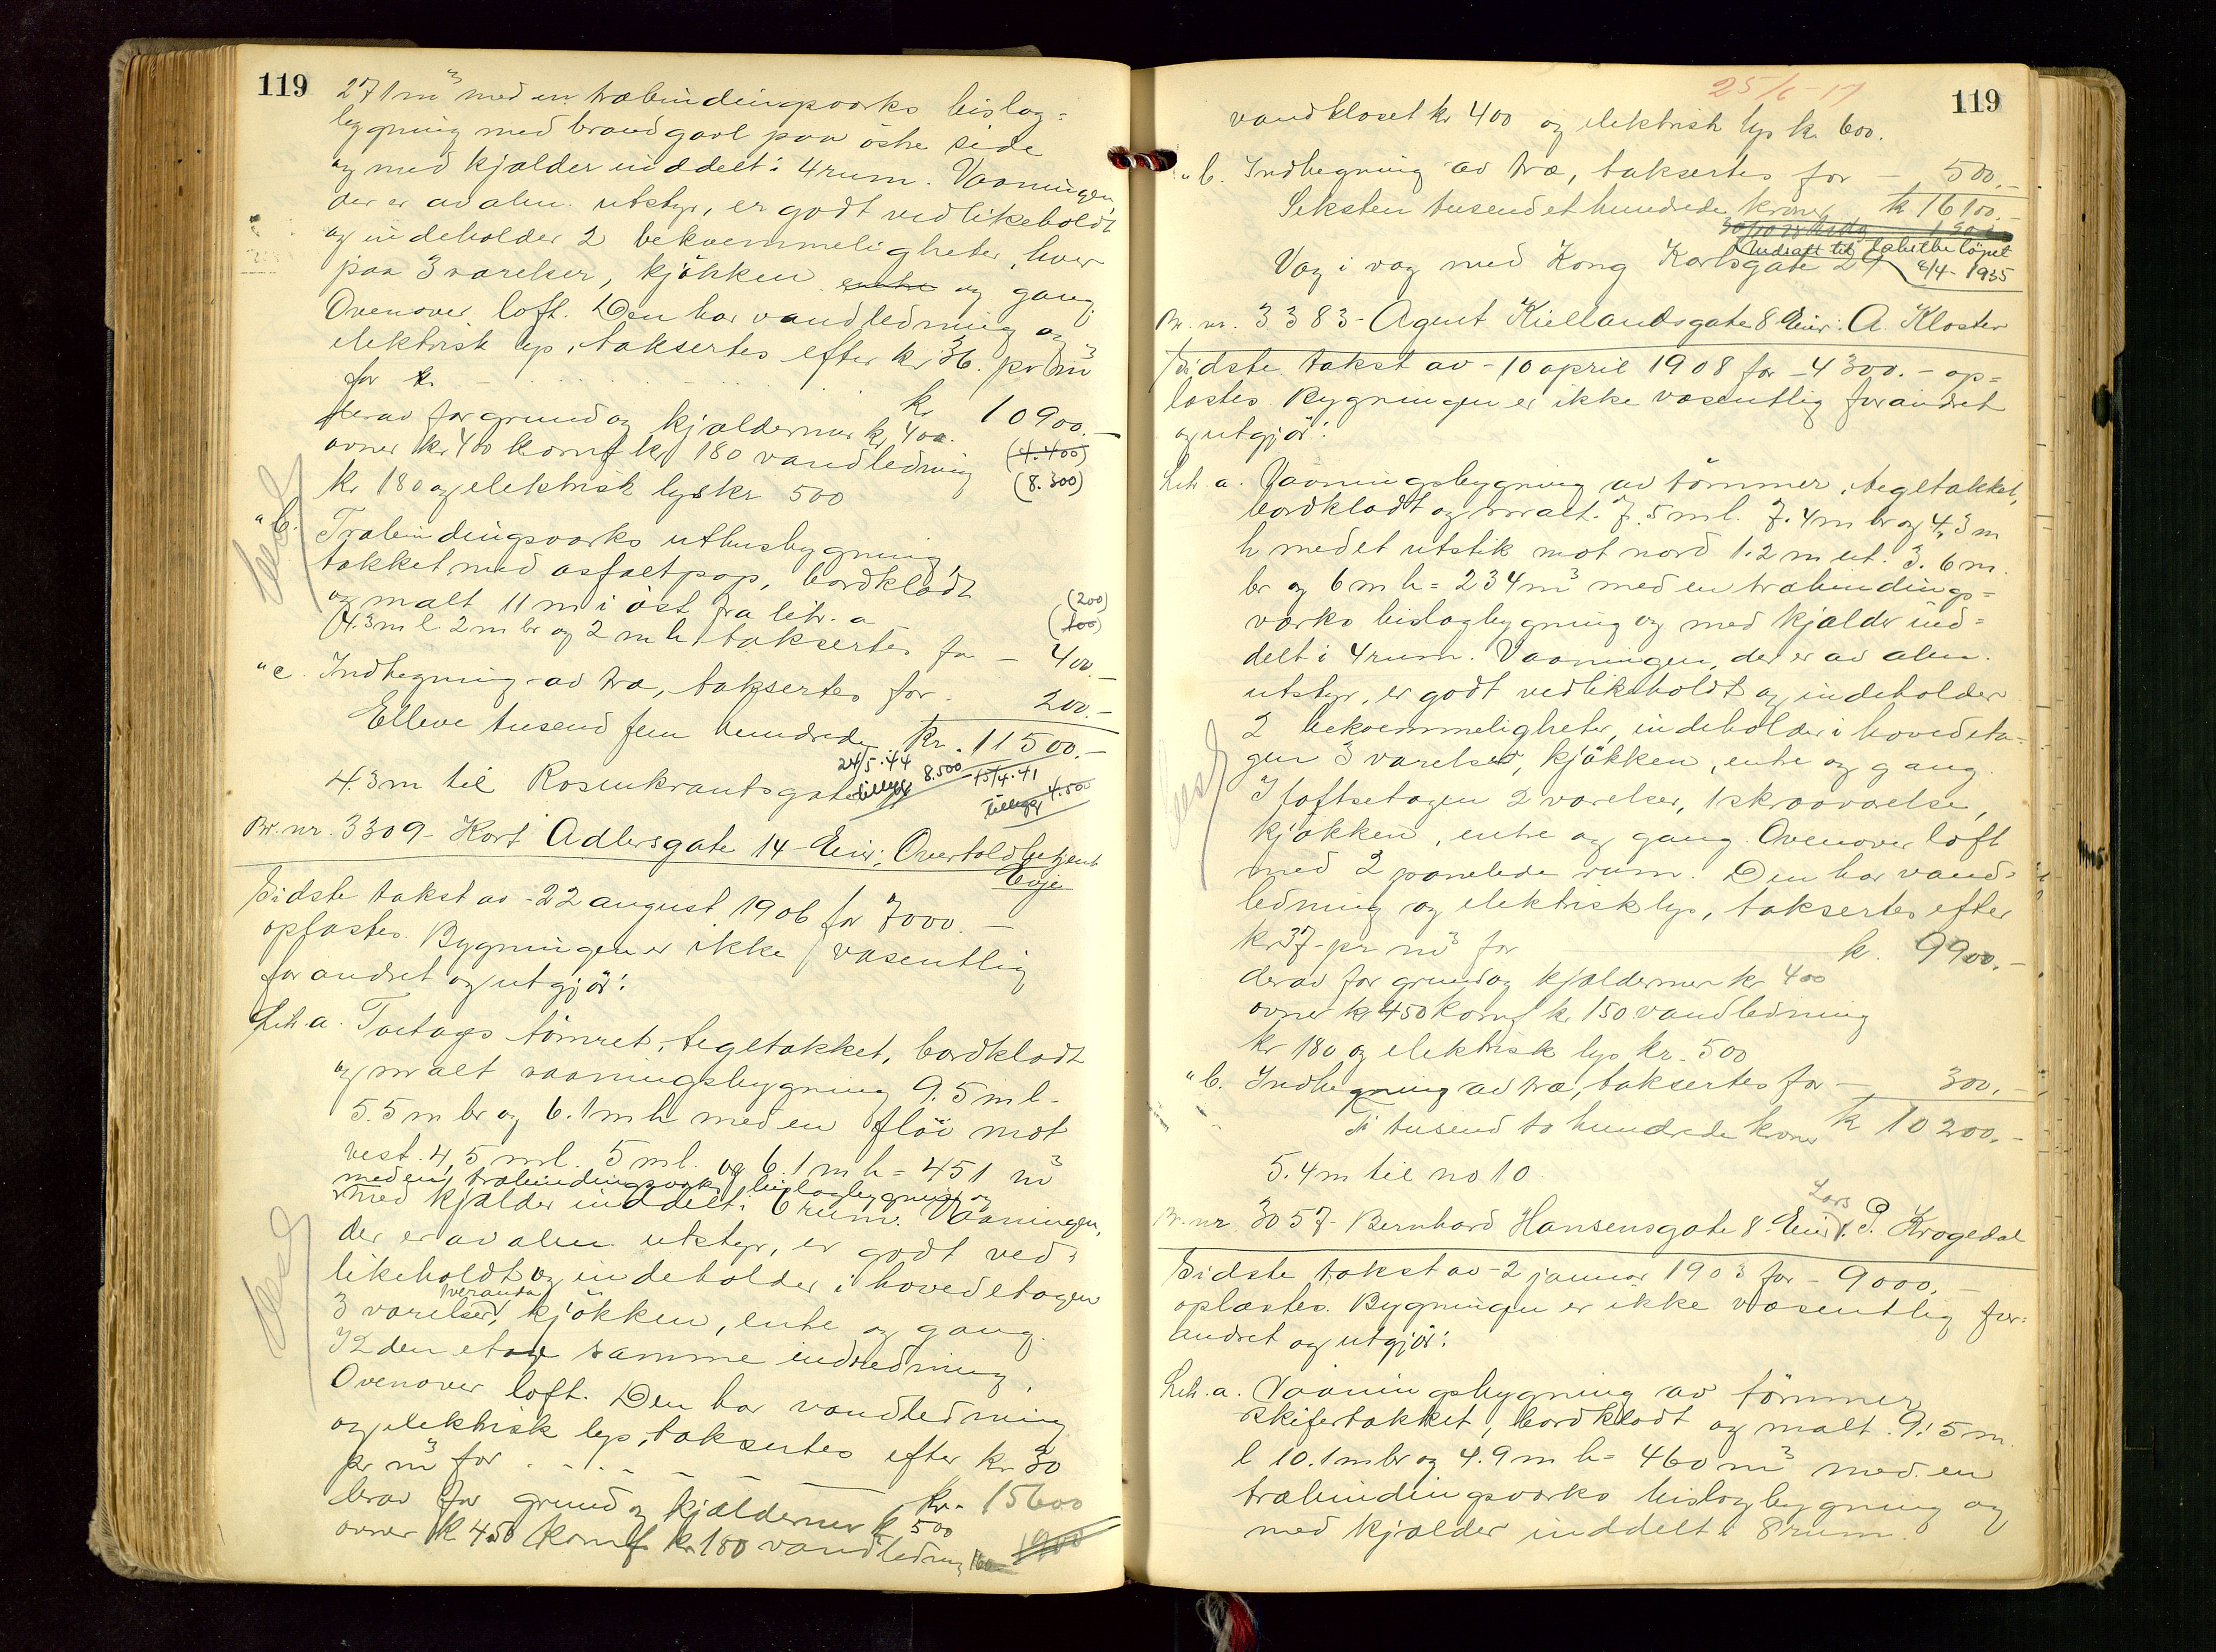 119
271 m³ med en træbindingsværks bislag=
bygning med brandgavl paa östre side
og med kjælder inddelt i 4 rum. Vaaningen,
der er av alm. utstyr, er godt vedlikeholdt
og indeholder 2 bekvemmeligheter, hver
paa 3 værelser, kjökken entre og gang.
Ovenover loft. Den har vandledning og
elektrisk lys, taksertes efter kr 36. pr m³
for kr. kr 10900.-
derav for grund og kjældermur kr 400.
ovner kr 400 komf kr 180 vandledning (4.400)
kr 180 og elektrisk lys kr 500 (8.300)
" b. Træbindingsværks uthusbygning,
tækket med asfaltpap, bordklædt
og malt 11 m i öst fra litr. a (200)
4.3 m l. 2 m br og 2 m h taksertes for - 400.- (100)
" c. Indhegning av træ, taksertes for. 200.-
Elleve tusend fem hundrede Kr. 11500.-
24/5.44 tillegg 8.500 15/4.41 tillegg 4.500
4.3 m til Rosenkrantsgate
Br. nr. 3309- Kort Adlersgate 14 Eier: Overtoldbetjent
Eeje
Sidste takst av - 22 august 1906 for 7000.-
oplæstes. Bygningen er ikke væsentlig
forandret og utgjör:
Litr. a. Toetages tömret, tegltækket, bordklædt
og malt vaaningsbygning 9.5 m l-
5.5 m br og 6.1 m h med en flöi mot
vest 4,5 m l. 5 m l. og 6.1 m h = 451 m³
med en træbindingsværks bislagbygning og
med kjælder inddelt i 6 rum. Vaaningen,
der er av alm utstyr, er godt ved=
likeholdt og indeholder i hovedetagen
3 værelser, veranda kjökken, entre og gang.
I 2den etage samme indredning.
Ovenover loft. Den har vandledning
og elektrisk lys, taksertes efter kr 30
pr m³ for kr. 15600
derav for grund og kjældermur kr 500
ovner kr 450 komf kr 180 vandledning 1900
25/6-17
119
vandkloset kr 400 og elektrisk lys kr 600.
" b. Indhegning av træ, taksertes for - 500.-
Seksten tusend et hundrede kroner kr 16100.-
Væg i væg med Kong Karlsgate 27
8/4-1935
Br. nr. 3383- Agent Kiellandsgate 8 Eier: A. Kloster
Sidste takst av - 10 april 1908 for - 4300.- op=
læstes. Bygningen er ikke væsentlig forandret
og utgjör:
Litr. a. Vaaningsbygning av tömmer, tegltækket,
bordklædt og malt. 7.5 m l. 7.4 m br og 4.3 m
h med et utstik mot nord 1.2 m ut. 3.6 m.
br og 6 m h = 234 m³ med en træbindings=
værks bislagbygning og med kjælder ind=
delt i 4 rum. Vaaningen, der er av alm.
utstyr, er godt vedlikeholdt og indeholder
2 bekvemmeligheter, indeholder i hovedeta=
gen 3 værelser, kjökken, entre og gang.
I loftsetagen 2 værelser, 1 skraaværelse,
kjökken, entre og gang. Ovenover loft
med 2 panelede rum. Den har vand=
ledning og elektrisk lys, taksertes efter
kr 37- pr m³ for kr. 9900.-
derav for grund og kjældermur kr 400
ovner kr 450 komf kr 150 vandledning
kr 180 og elektrisk lys kr. 500
" b. Indhegning av træ, taksertes for - 300.-
Ti tusend to hundrede kroner kr 10200.-
5.4 m til no 10.
Br. nr. 3057- Bernhard Hansensgate 8. Eier: Lars P. Krogedal
Sidste takst av - 2 januar 1903 for - 9000.-
oplæstes. Bygningen er ikke væsentlig for=
andret og utgjör:
Litr. a. Vaaningsbygning av tömmer,
skifertækket, bordklædt og malt. 9.5 m.
l 10.1 m br og 4.9 m h = 460 m³ med en
træbindingsværks bislagbygning og
med kjælder inddelt i 8 rum.